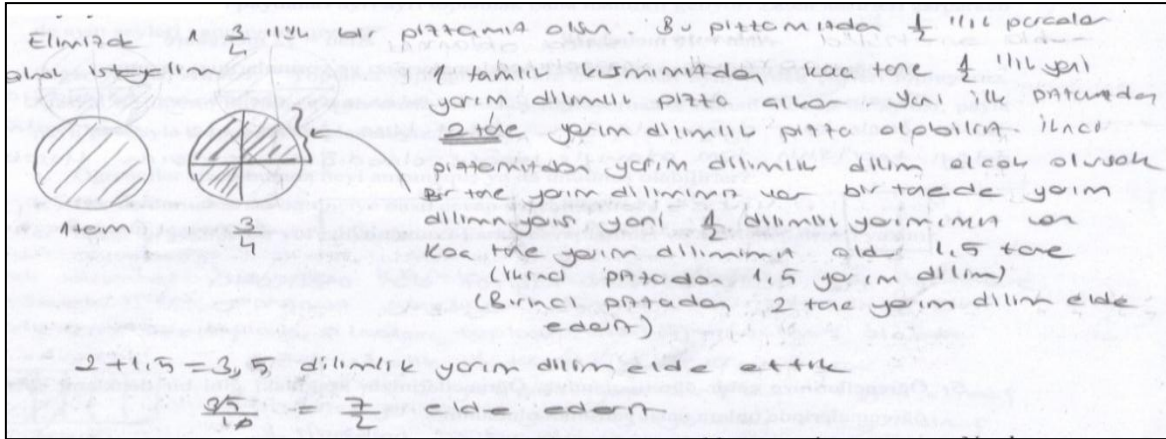 Elimizde 1 3/4 'lük bir pizzamız olsun. Bu pizzamızdan 1/2 'lik parçalar
almak isteyelim.
1 tamlık kısmımızdan kaç tane 1/2 'lik yani
yarım dilimlik pizza çıkar yani ilk pizzadan
2 tane yarım dilimlik pizza alabilirim. ikinci
pizzadan yarım dilimlik dilim alacak olursak
Bir tane yarım dilimimiz var bir tanede yarım
dilimin yarısı yani 1/2 dilimlik yarımımız var
Kaç tane yarım dilimimiz oldu 1.5 tane
(İkinci pizzadan 1.5 yarım dilim)
(Birinci pizzadan 2 tane yarım dilim elde
ederiz)
1 tam 3/4
2 + 1,5 = 3,5 dilimlik yarım dilim elde ettik
35/10 = 7/2 elde ederiz